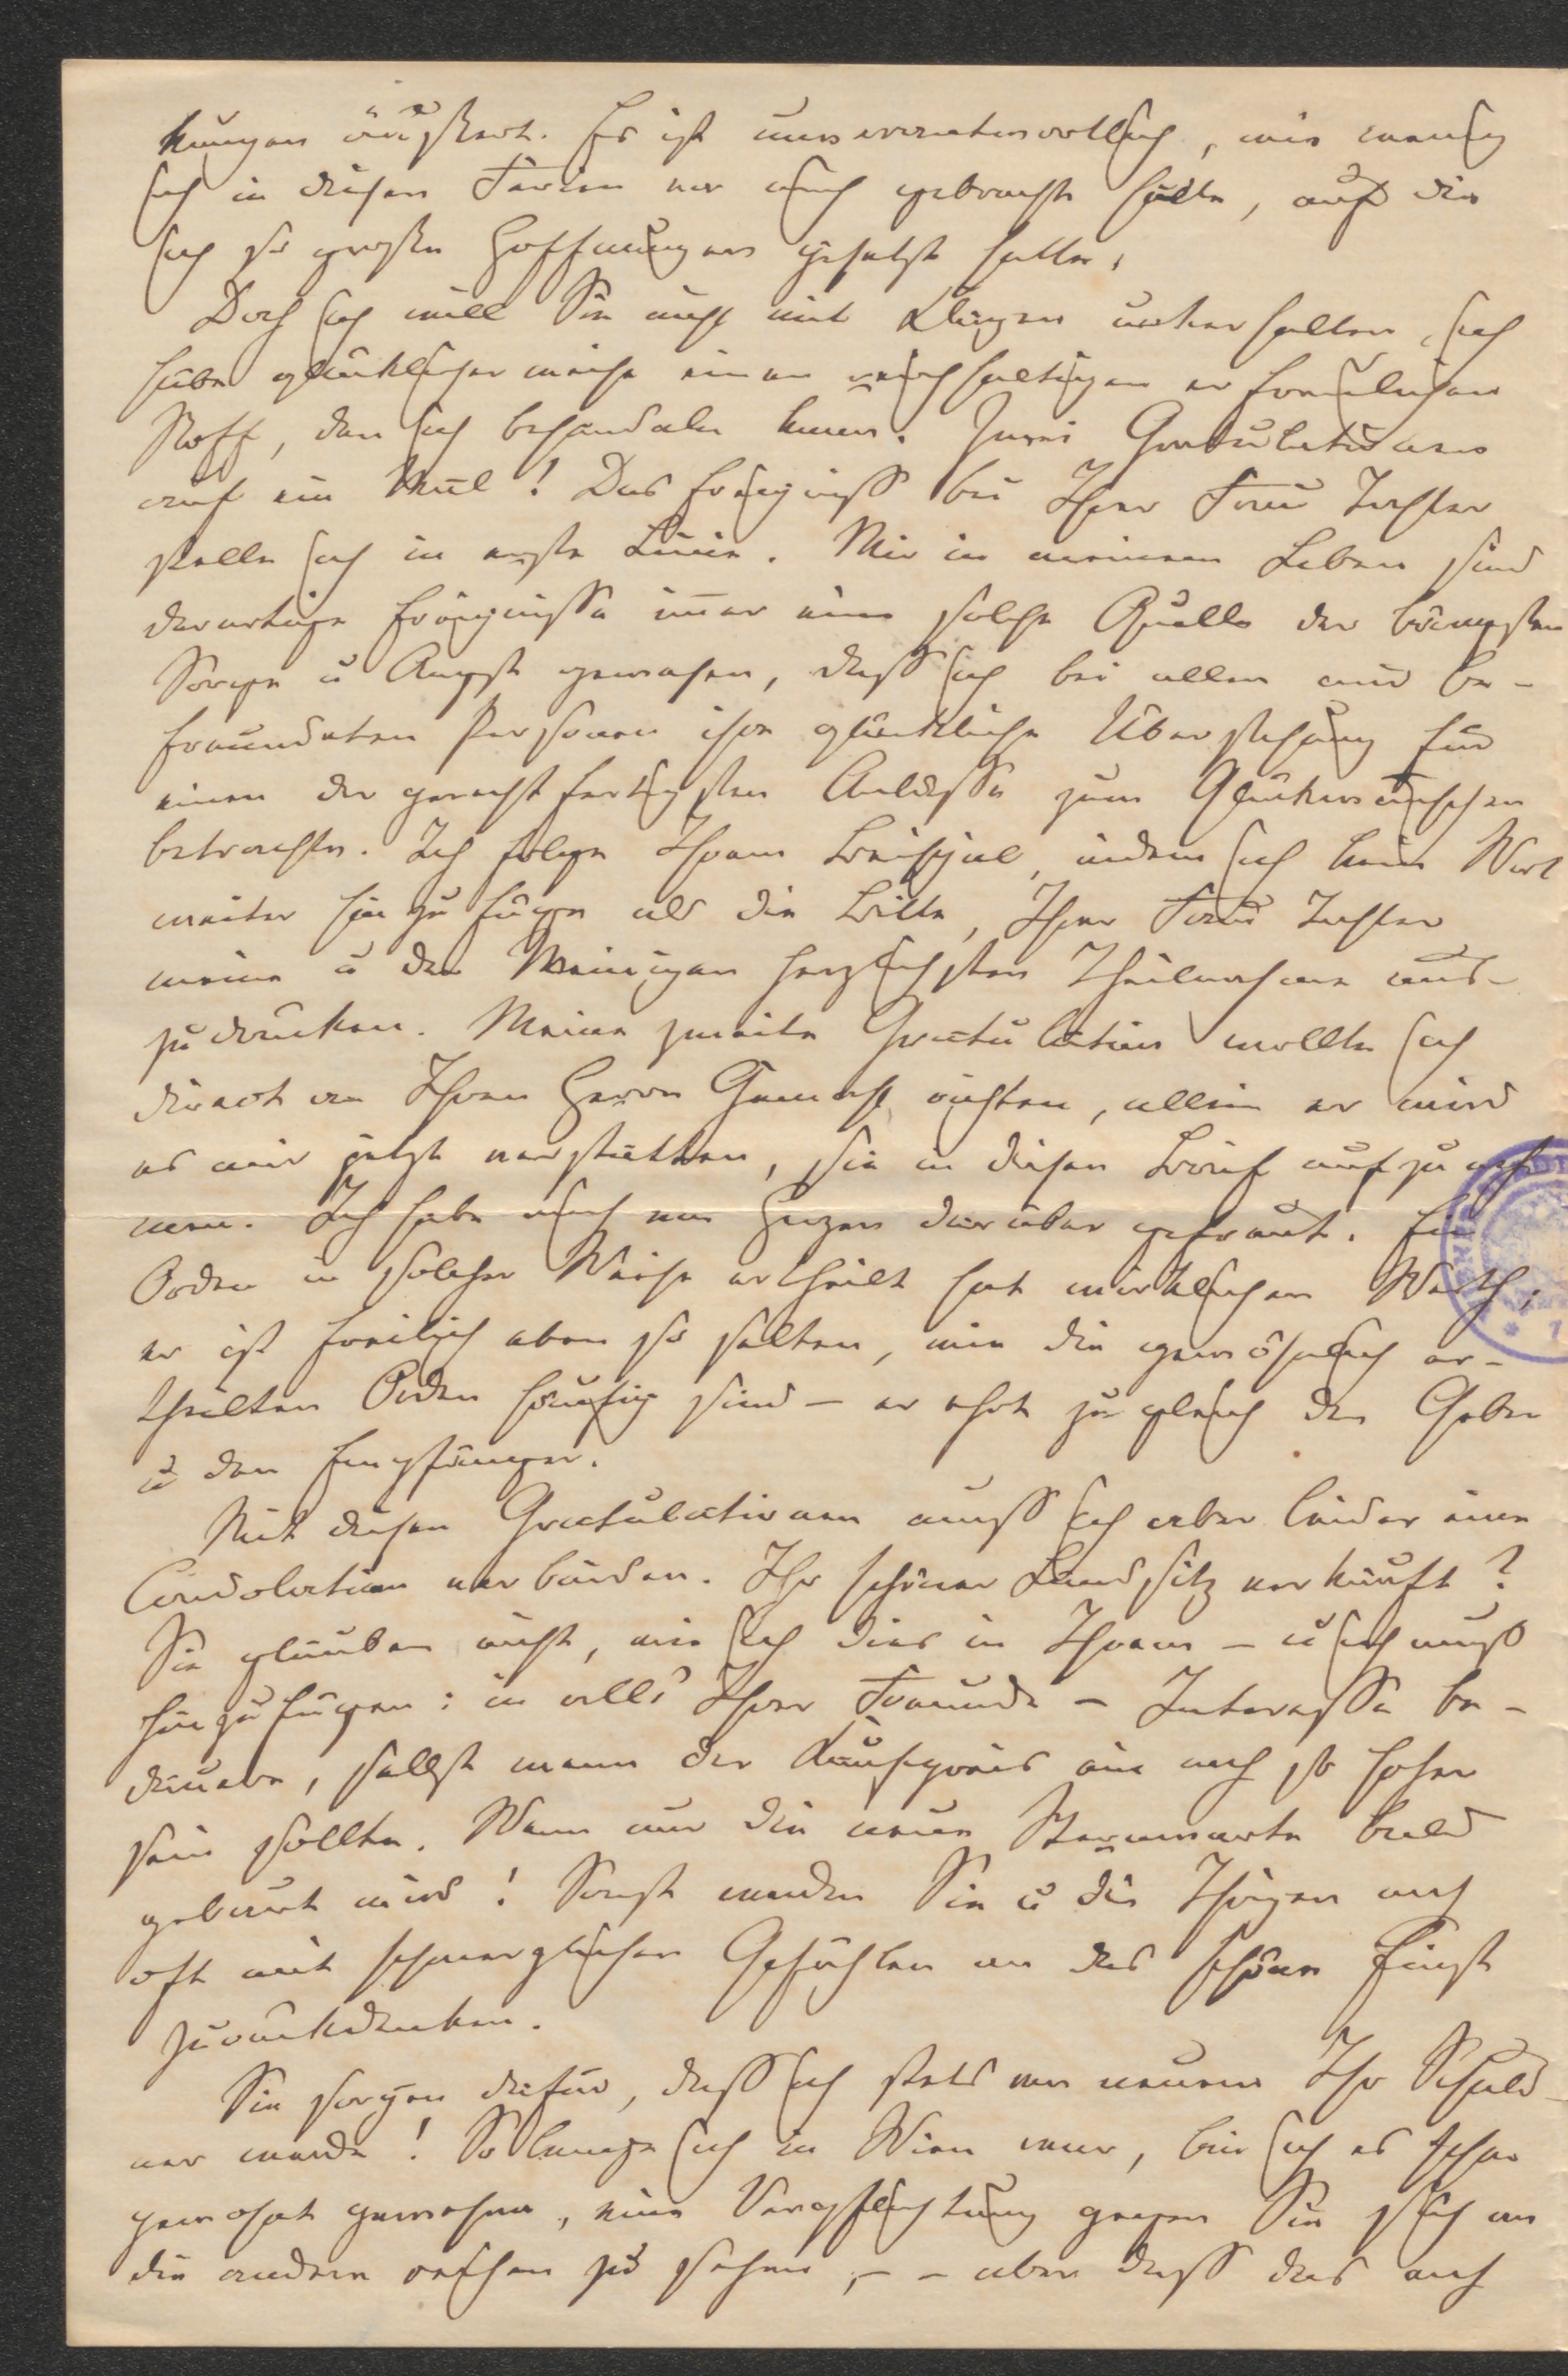 kungen äußert. Es ist unverantwortlich, wie wenig
ich in diesen Ferien vor mich gebracht habe, auf die
ich so große Hoffnungen gesetzt hatte.
Doch ich will Sie nicht mit Klagen unterhalten, ich
habe glücklicher weise einen reichhaltigen erfreulichen
Stoff, den ich behandeln kann. Zwei Gratulationen
auf ein Mal! Das Ereigniss bei Ihrer Frau Tochter
stelle ich in erste Linie. Mir in meinem Leben sind
derartige Ereignisse im̅er eine solche Quelle der bängsten
Sorge u Angst gewesen, dass ich bei allen mir be-
freundeten Personen ihre glückliche Überstehung für
einen der gerechtfertigsten Anlässe zum Glückwünschen
betrachte. Ich folge Ihrem Beispiel, indem ich kein Wort
weiter hinzufüge als die Bitte, Ihrer Frau Tochter
meine u der Meinigen herzlichsten Theilnahme aus-
zudrücken. Meine zweite Gratulation wollte ich
direct an Ihren Herrn Gemahl richten, allein er wird
es mir jetzt verstatten, sie in diesen Brief aufzuneh
men. Ich habe mich von Herzen darüber gefreut. Ein
Orden in solcher Weise ertheilt hat wirklichen Werth;
er ist freilich eben so selten, wie die gewöhnlich er-
theilten Orden häufig sind – er ehrt zugleich den Geber
u den Empfänger.
Mit diesen Gratulationen muss ich aber leider eine
Condolation verbinden. Ihr schöner Landsitz verkauft?
Sie glauben nicht, wie ich dies in Ihrem – u ich muß
hinzufügen: in all' Ihrer Freunde – Interesse be-
dauere, selbst wenn der Kaufpreis ein noch so hoher
sein sollte. Wenn nur die neue Sternwarte bald
gebaut wird! Sonst werden Sie u die Ihrigen noch
oft mit schmerzlichen Gefühlen an das schöne Einst
zurückdenken.
Sie sorgen dafür, dass ich stets von neuem Ihr Schuld-
ner werde! So lange ich in Wien war, bin ich es schon
gewohnt gewesen, eine Verpflichtung gegen Sie sich an
die andere reihen zu sehen, – – aber dass das auch